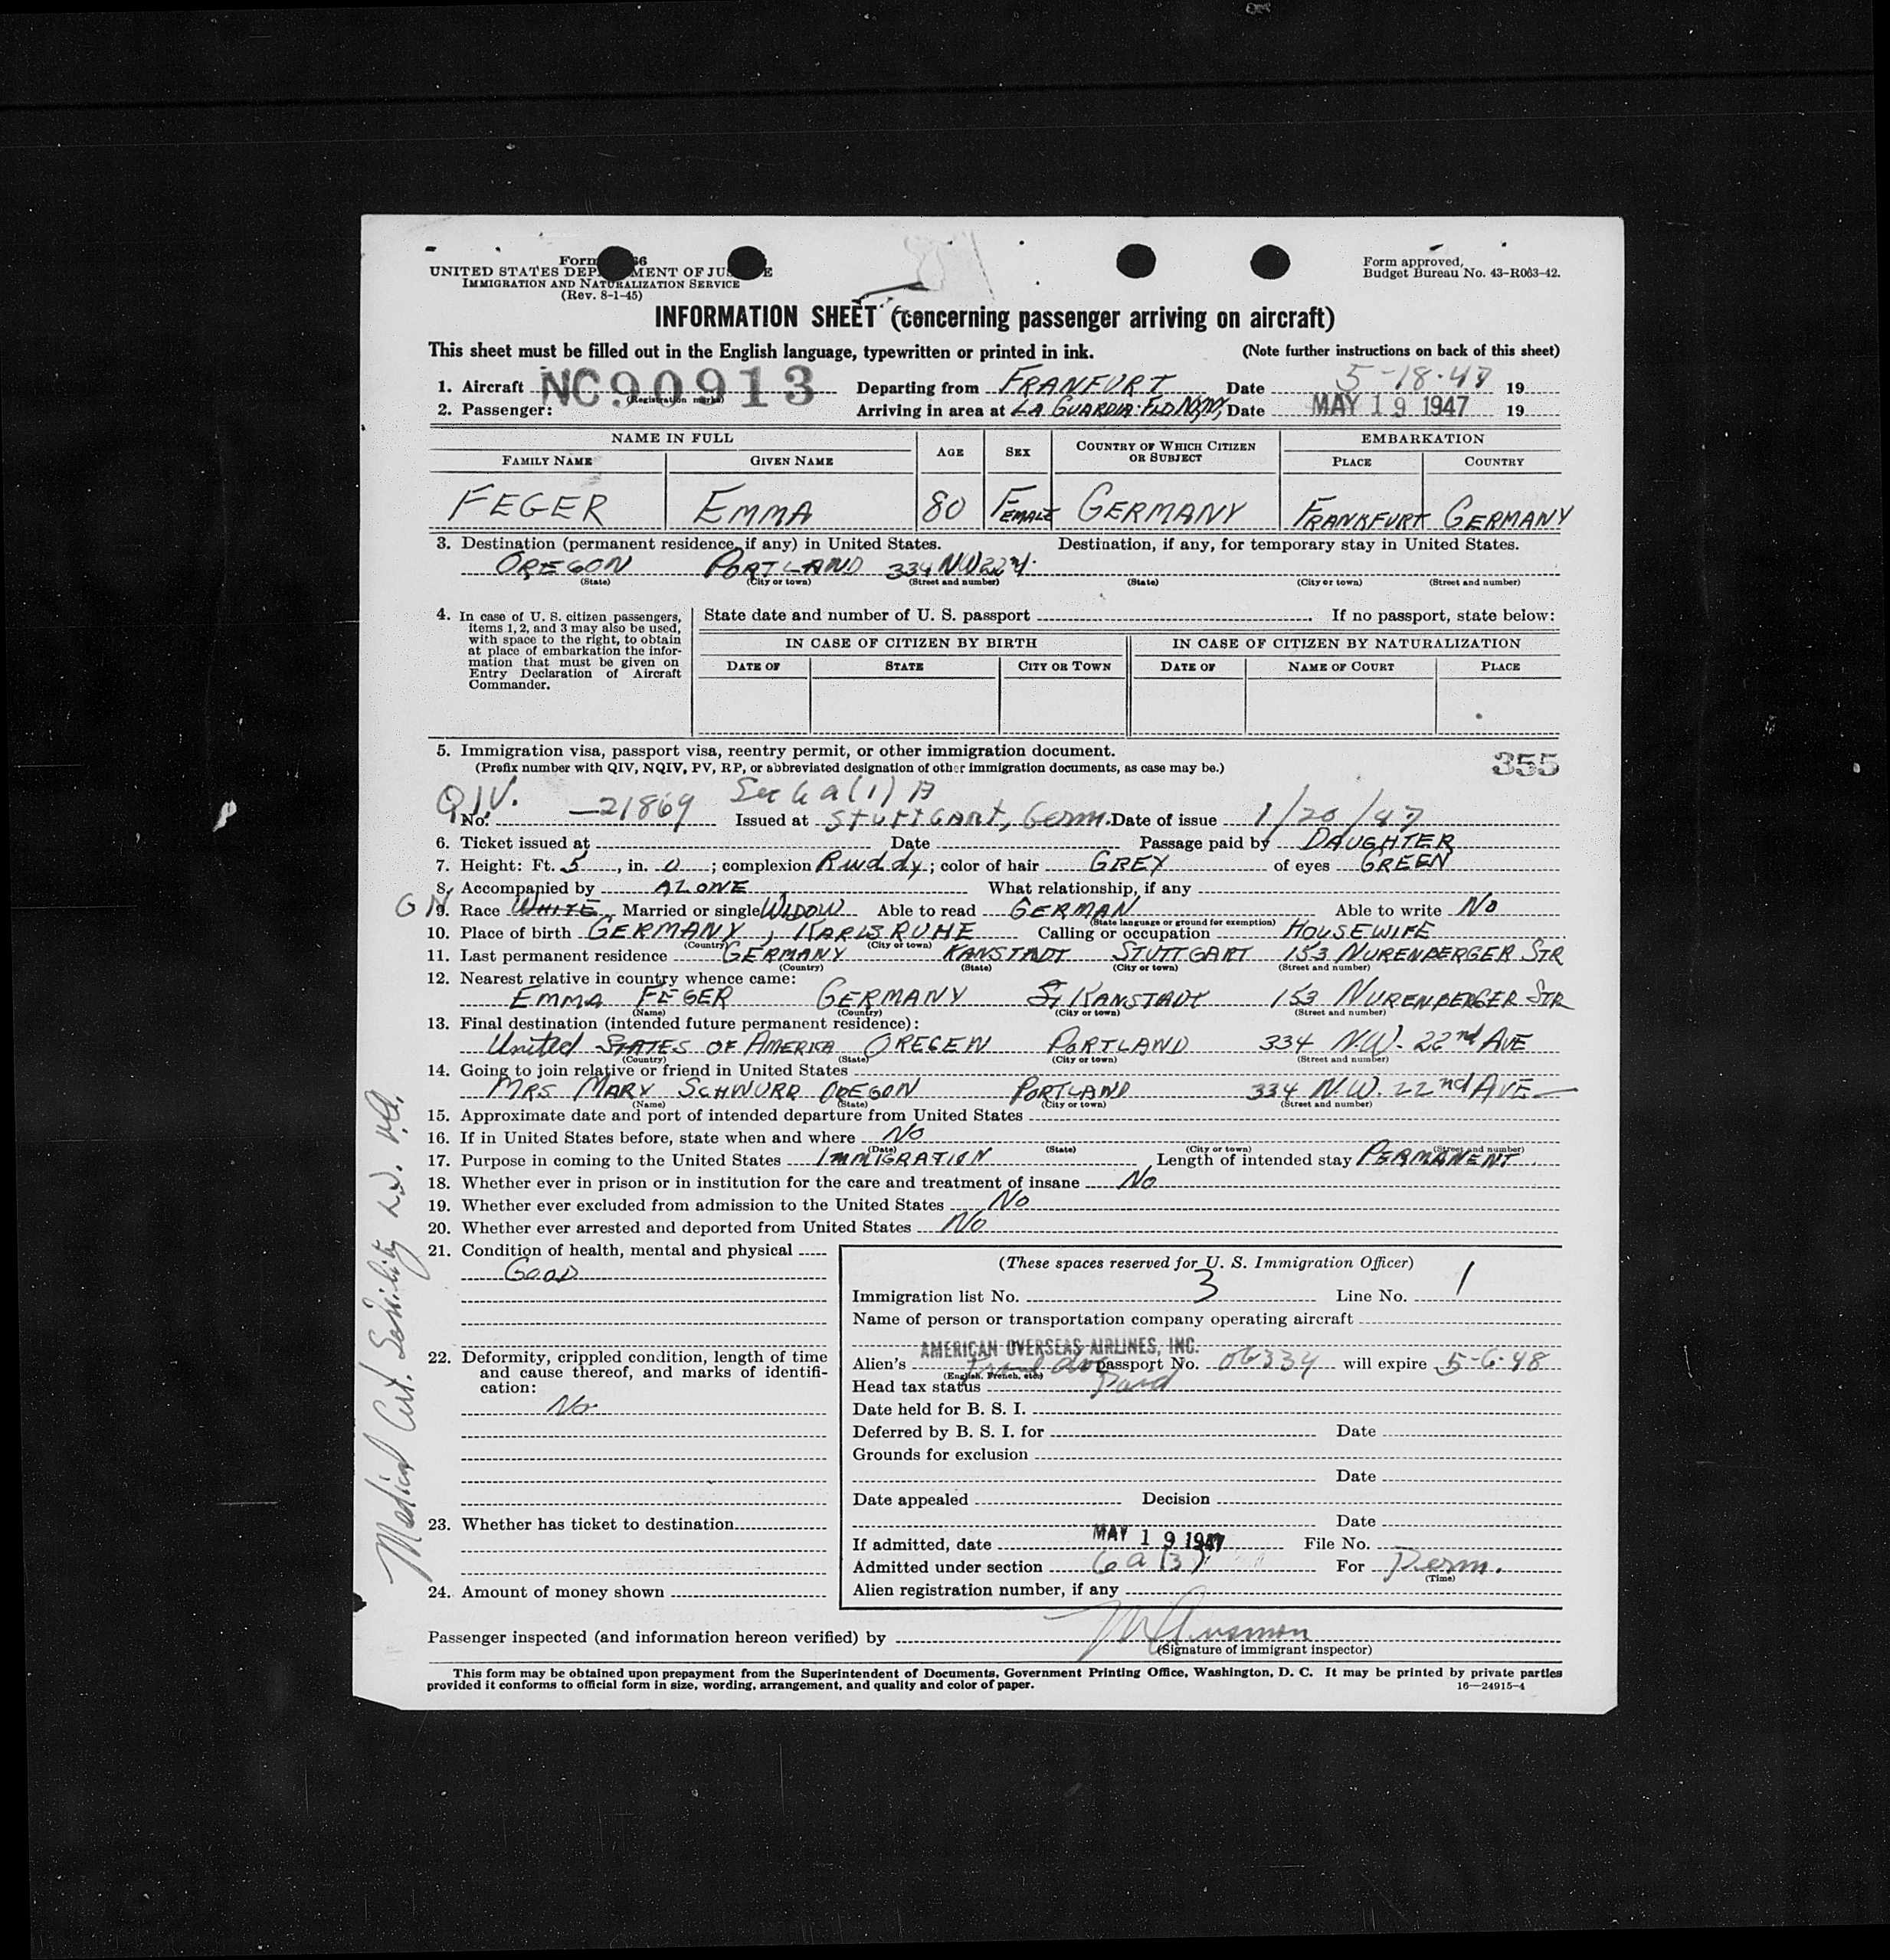 Form 66
UNITED STATES DEP MENT OF JUS E
IMMIGRATION AND NATURALIZATION SERVICE
(Rev. 8-1-45)
Form approved,
Budget Bureau No. 43-R063-42.
INFORMATION SHEET (concerning passenger arriving on aircraft)
This sheet must be filled out in the English language, typewritten or printed in ink. (Note further instructions on back of this sheet)
1. Aircraft NC90913 Departing from FRANFURT Date 5-18-47 19
(Registration marks)
2. Passenger: Arriving in area at LA GUARDIA FLD N.Y., Date MAY 19 1947 19
NAME IN FULL AGE SEX COUNTRY OF WHICH CITIZEN OR SUBJECT EMBARKATION
FAMILY NAME GIVEN NAME PLACE COUNTRY
FEGER EMMA 80 FEMALE GERMANY FRANKFURT GERMANY
3. Destination (permanent residence, if any) in United States. Destination, if any, for temporary stay in United States.
OREGON PORTLAND 334 NW 22nd.
(State) (City or town) (Street and number) (State) (City or town) (Street and number)
4. In case of U. S. citizen passengers, items 1, 2, and 3 may also be used, with space to the right, to obtain at place of embarkation the information that must be given on Entry Declaration of Aircraft Commander.
State date and number of U. S. passport If no passport, state below:
IN CASE OF CITIZEN BY BIRTH IN CASE OF CITIZEN BY NATURALIZATION
DATE OF STATE CITY OR TOWN DATE OF NAME OF COURT PLACE
5. Immigration visa, passport visa, reentry permit, or other immigration document.
(Prefix number with QIV, NQIV, PV, RP, or abbreviated designation of other immigration documents, as case may be.)
355
QIV. Sec 6 a (1) B
No. —21869 Issued at STUTTGART, Germ. Date of issue 1/20/47
6. Ticket issued at Date Passage paid by DAUGHTER
7. Height: Ft. 5, in. 0; complexion Ruddy; color of hair GREY of eyes GREEN
8. Accompanied by ALONE What relationship, if any
GN 9. Race WHITE Married or single WIDOW Able to read GERMAN Able to write NO
(State language or ground for exemption)
10. Place of birth GERMANY, KARLSRUHE Calling or occupation HOUSEWIFE
(Country) (City or town)
11. Last permanent residence GERMANY KANSTADT STUTTGART 153 NURENBERGER STR
(Country) (State) (City or town) (Street and number)
12. Nearest relative in country whence came:
EMMA FEGER GERMANY St KANSTADT 153 NURENBERGER STR
(Name) (Country) (City or town) (Street and number)
13. Final destination (intended future permanent residence):
United STATES OF AMERICA OREGEN PORTLAND 334 N.W. 22nd AVE
(Country) (State) (City or town) (Street and number)
14. Going to join relative or friend in United States
MRS MARY SCHWURR OREGON PORTLAND 334 N.W. 22nd AVE
(Name) (State) (City or town) (Street and number)
15. Approximate date and port of intended departure from United States
16. If in United States before, state when and where NO
(Date) (State) (City or town) (Street and number)
17. Purpose in coming to the United States IMMIGRATION Length of intended stay PERMANENT
18. Whether ever in prison or in institution for the care and treatment of insane NO
19. Whether ever excluded from admission to the United States NO
20. Whether ever arrested and deported from United States NO
21. Condition of health, mental and physical
GOOD
22. Deformity, crippled condition, length of time and cause thereof, and marks of identification:
No
23. Whether has ticket to destination
24. Amount of money shown
Medical Cert. Senility
(These spaces reserved for U. S. Immigration Officer)
Immigration list No. 3 Line No. 1
Name of person or transportation company operating aircraft
AMERICAN OVERSEAS AIRLINES, INC.
Alien's passport No. 06334 will expire 5-6-48
(English, French, etc.)
Head tax status Paid
Date held for B. S. I.
Deferred by B. S. I. for Date
Grounds for exclusion
Date
Date appealed Decision
Date
If admitted, date MAY 19 1947 File No.
Admitted under section 6a(3) For Perm.
(Time)
Alien registration number, if any
Passenger inspected (and information hereon verified) by
(Signature of immigrant inspector)
This form may be obtained upon prepayment from the Superintendent of Documents, Government Printing Office, Washington, D. C. It may be printed by private parties
provided it conforms to official form in size, wording, arrangement, and quality and color of paper. 16—24915-4